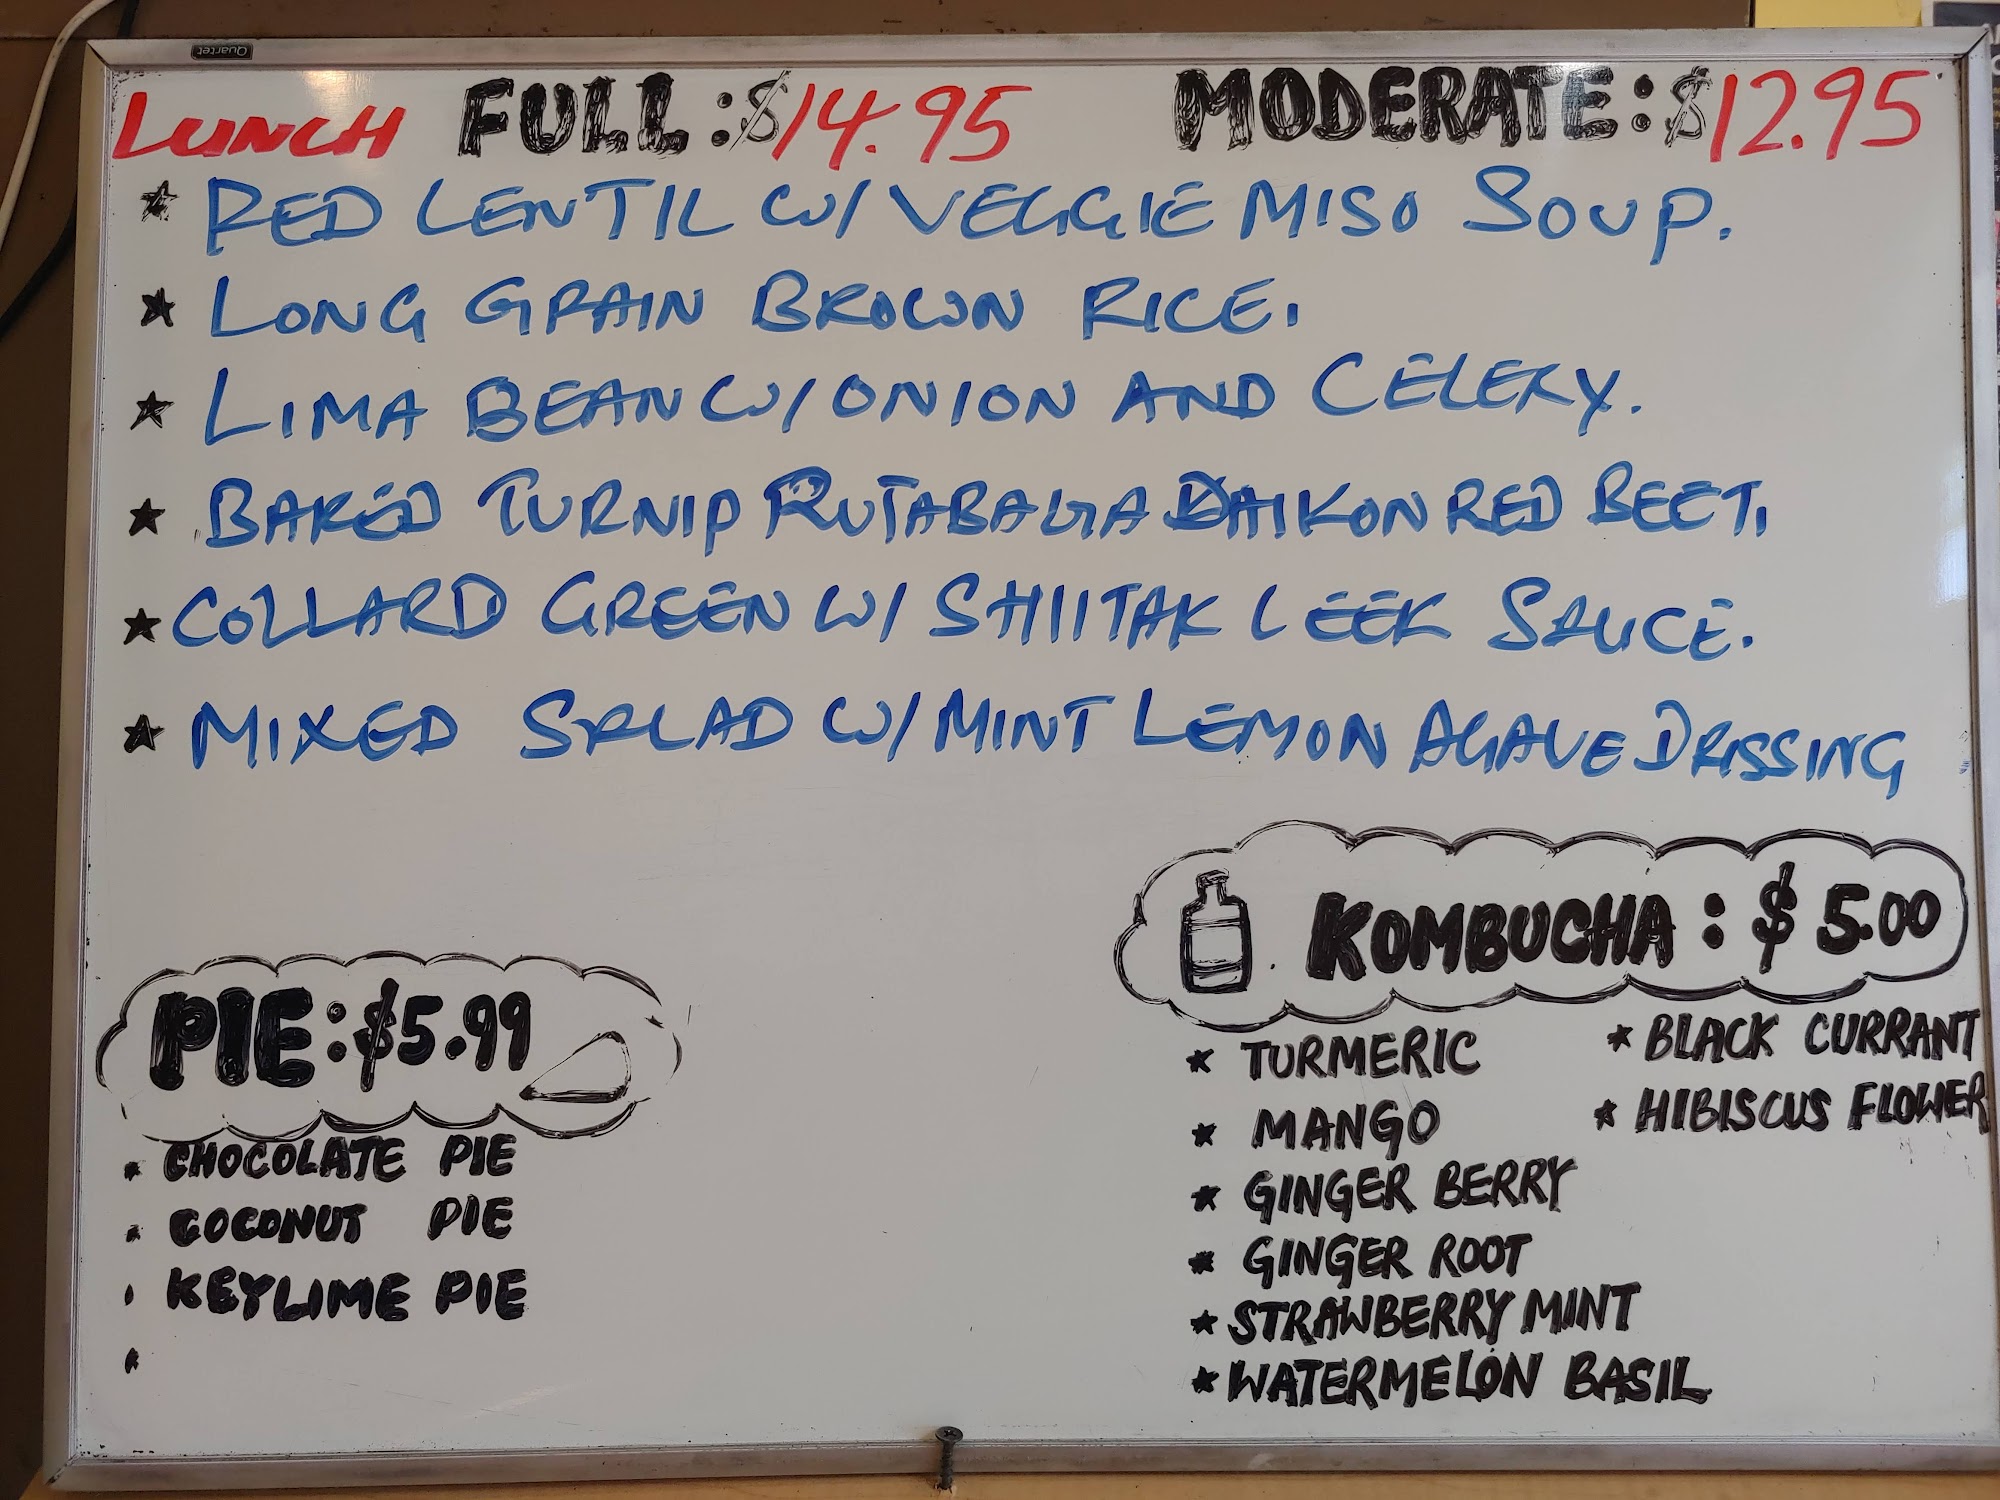 Quartet
LUNCH FULL: $14.95 MODERATE: $12.95
★ RED LENTIL W/ VEGGIE MISO SOUP.
★ LONG GRAIN BROWN RICE.
★ LIMA BEAN W/ ONION AND CELERY.
★ BAKED TURNIP RUTABAGA DAIKON RED BEET.
★ COLLARD GREEN W/ SHIITAK LEEK SAUCE.
★ MIXED SALAD W/ MINT LEMON AGAVE DRISSING
PIE: $5.99
• CHOCOLATE PIE
• COCONUT PIE
• KEYLIME PIE
KOMBUCHA: $5.00
★ TURMERIC
★ MANGO
★ GINGER BERRY
★ GINGER ROOT
★ STRAWBERRY MINT
★ WATERMELON BASIL
★ BLACK CURRANT
★ HIBISCUS FLOWER